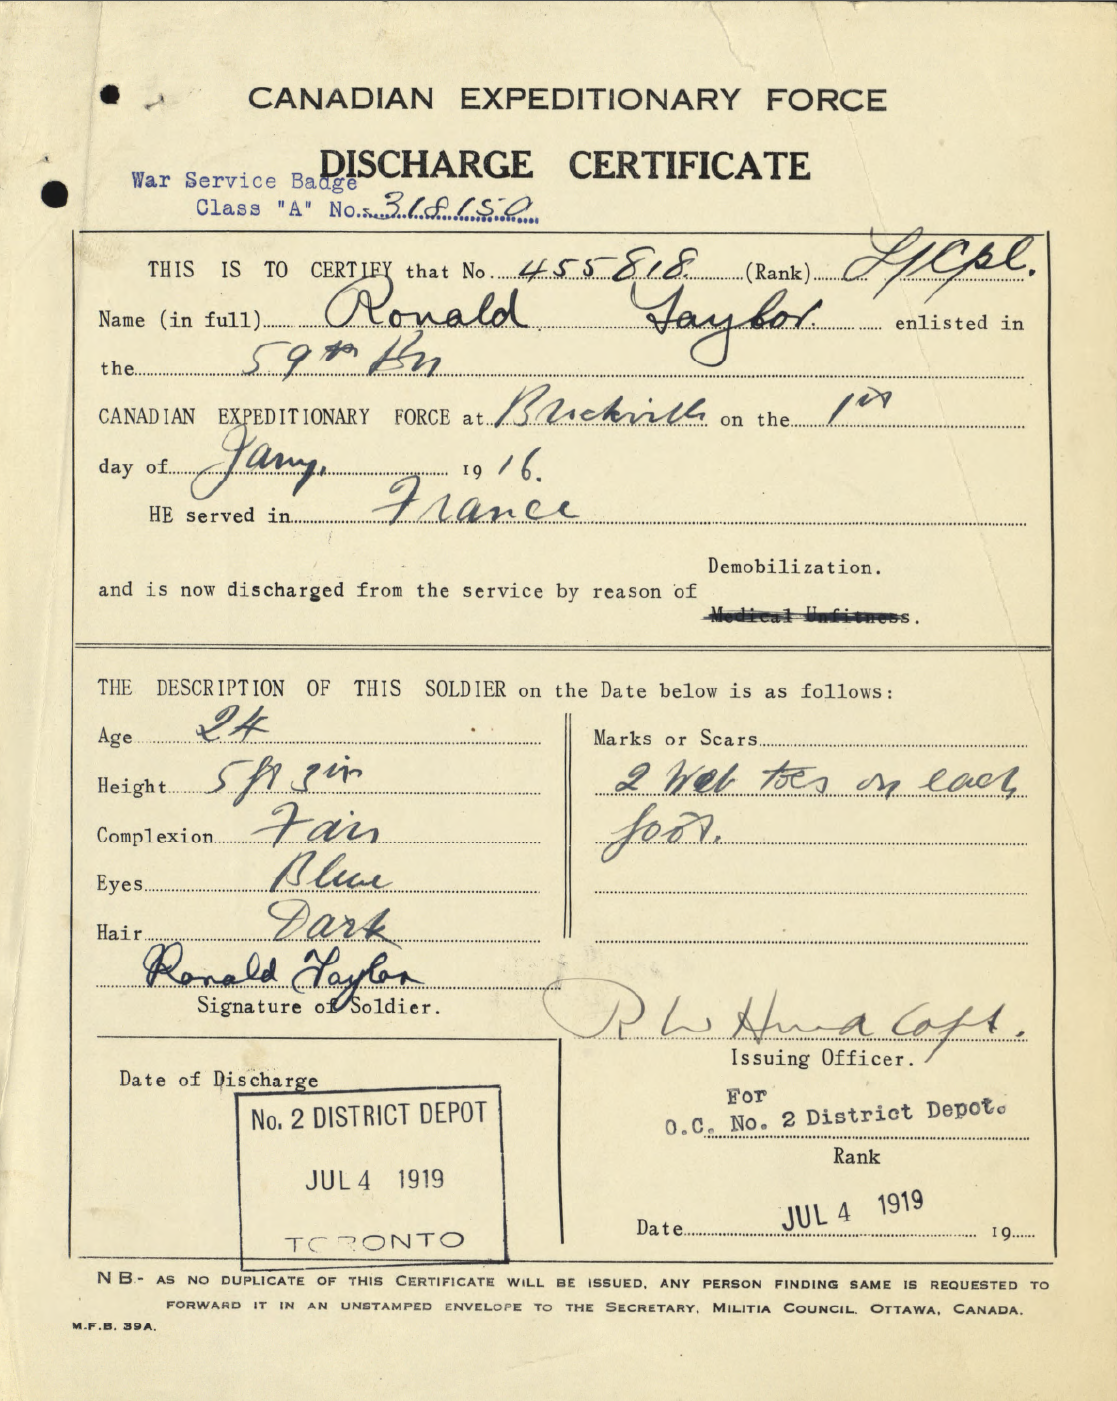 CANADIAN EXPEDITIONARY FORCE
DISCHARGE CERTIFICATE
War Service Badge
Class "A" No. 318150
THIS IS TO CERTIFY that No. 455818 (Rank) L/Cpl.
Name (in full) Ronald Taylor. enlisted in
the 59th Bn
CANADIAN EXPEDITIONARY FORCE at Brockville on the 1st
day of Jany. 1916.
HE served in France
Demobilization.
and is now discharged from the service by reason of
Medical Unfitness.
THE DESCRIPTION OF THIS SOLDIER on the Date below is as follows:
Age 24
Height 5 ft 3 in
Complexion Fair
Eyes Blue
Hair Dark
Ronald Taylor
Signature of Soldier.
Marks or Scars
2 Web toes on each
foot.
R W Capt.
Issuing Officer.
For
O.C. No. 2 District Depot.
Rank
Date JUL 4 1919 19
Date of Discharge
No. 2 DISTRICT DEPOT
JUL 4 1919
TORONTO
N B- AS NO DUPLICATE OF THIS CERTIFICATE WILL BE ISSUED, ANY PERSON FINDING SAME IS REQUESTED TO
FORWARD IT IN AN UNSTAMPED ENVELOPE TO THE SECRETARY, MILITIA COUNCIL, OTTAWA, CANADA.
M.F.B. 39A.